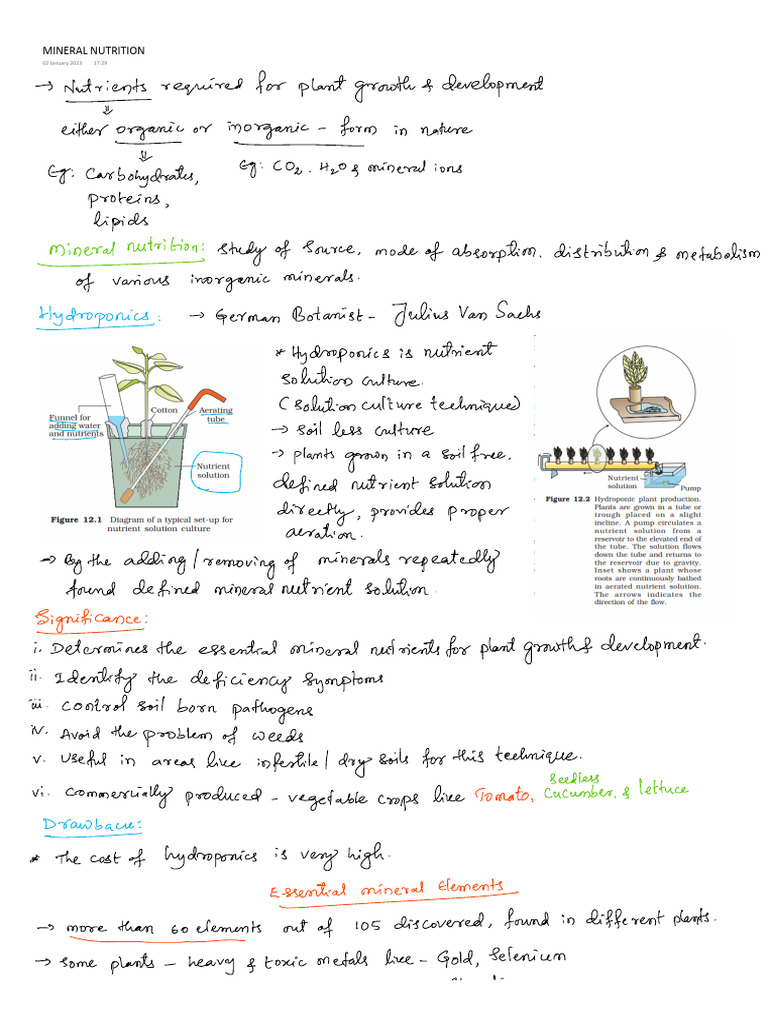 MINERAL NUTRITION
02 January 2023 17:29
→ Nutrients required for plant growth & development
⇓
either organic or inorganic - form in nature
⇓
Eg: Carbohydrates, Eg: CO2. H2O & mineral ions
proteins,
lipids
Mineral nutrition: Study of source, mode of absorption. distribution & metabolism
of various inorganic minerals.
Hydroponics: → German Botanist - Julius Van Sachs
* Hydroponics is nutrient
solution culture.
(solution culture technique)
→ soil less culture
→ plants grown in a soil free,
defined nutrient solution
directly, provides proper
aeration.
Funnel for
adding water
and nutrients
Cotton
Aerating
tube
Nutrient
solution
Figure 12.1 Diagram of a typical set-up for
nutrient solution culture
Nutrient
solution
Pump
Figure 12.2 Hydroponic plant production.
Plants are grown in a tube or
trough placed on a slight
incline. A pump circulates a
nutrient solution from a
reservoir to the elevated end of
the tube. The solution flows
down the tube and returns to
the reservoir due to gravity.
Inset shows a plant whose
roots are continuously bathed
in aerated nutrient solution.
The arrows indicates the
direction of the flow.
→ By the adding/removing of minerals repeatedly
found defined mineral nutrient solution.
Significance:
i. Determines the essential mineral nutrients for plant growth & development.
ii. Identify the deficiency symptoms
iii. Control soil born pathogens
iv. Avoid the problem of weeds
v. Useful in areas like infertile/dry soils for this technique.
vi. Commercially produced - vegetable crops like Tomato, Seedless Cucumber, & lettuce
Drawback:
* The cost of hydroponics is very high.
Essential mineral Elements
→ more than 60 elements out of 105 discovered, found in different plants.
→ Some plants - heavy & toxic metals like - Gold, Selenium